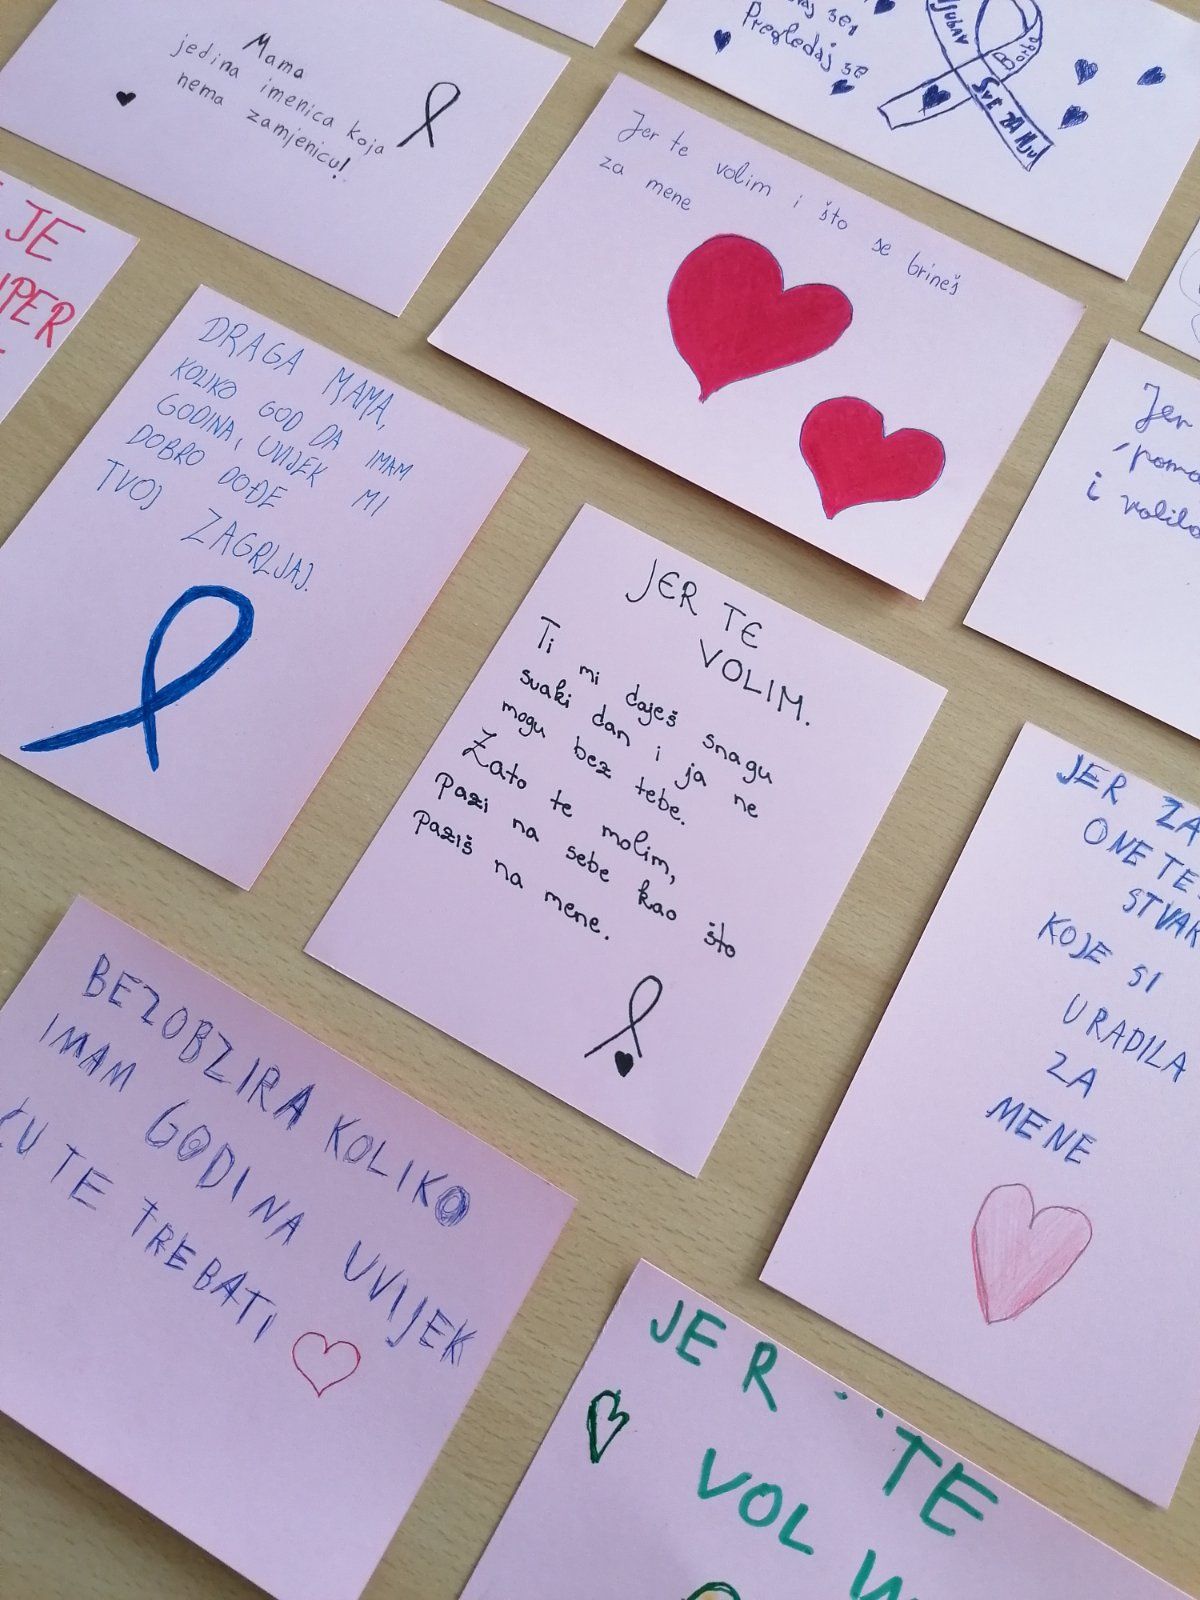 Mama
jedina imenica koja
nema zamjenicu!
Pregledaj se
Borba
SVE ZA NJU
Jer te volim i što se brineš
za mene
JE
DRAGA MAMA,
KOLIKO GOD DA IMAM
GODINA, UVIJEK MI
DOBRO DOĐE
TVOJ ZAGRLJAJ.
Jer
i volila
JER TE
VOLIM.
Ti mi daješ snagu
svaki dan i ja ne
mogu bez tebe.
Zato te molim,
pazi na sebe kao što
paziš na mene.
JER ZA
ONE TE
STVAR
KOJE SI
URADILA
ZA
MENE
BEZOBZIRA KOLIKO
IMAM GODINA UVIJEK
ĆU TE TREBATI
JER..TE
VOL